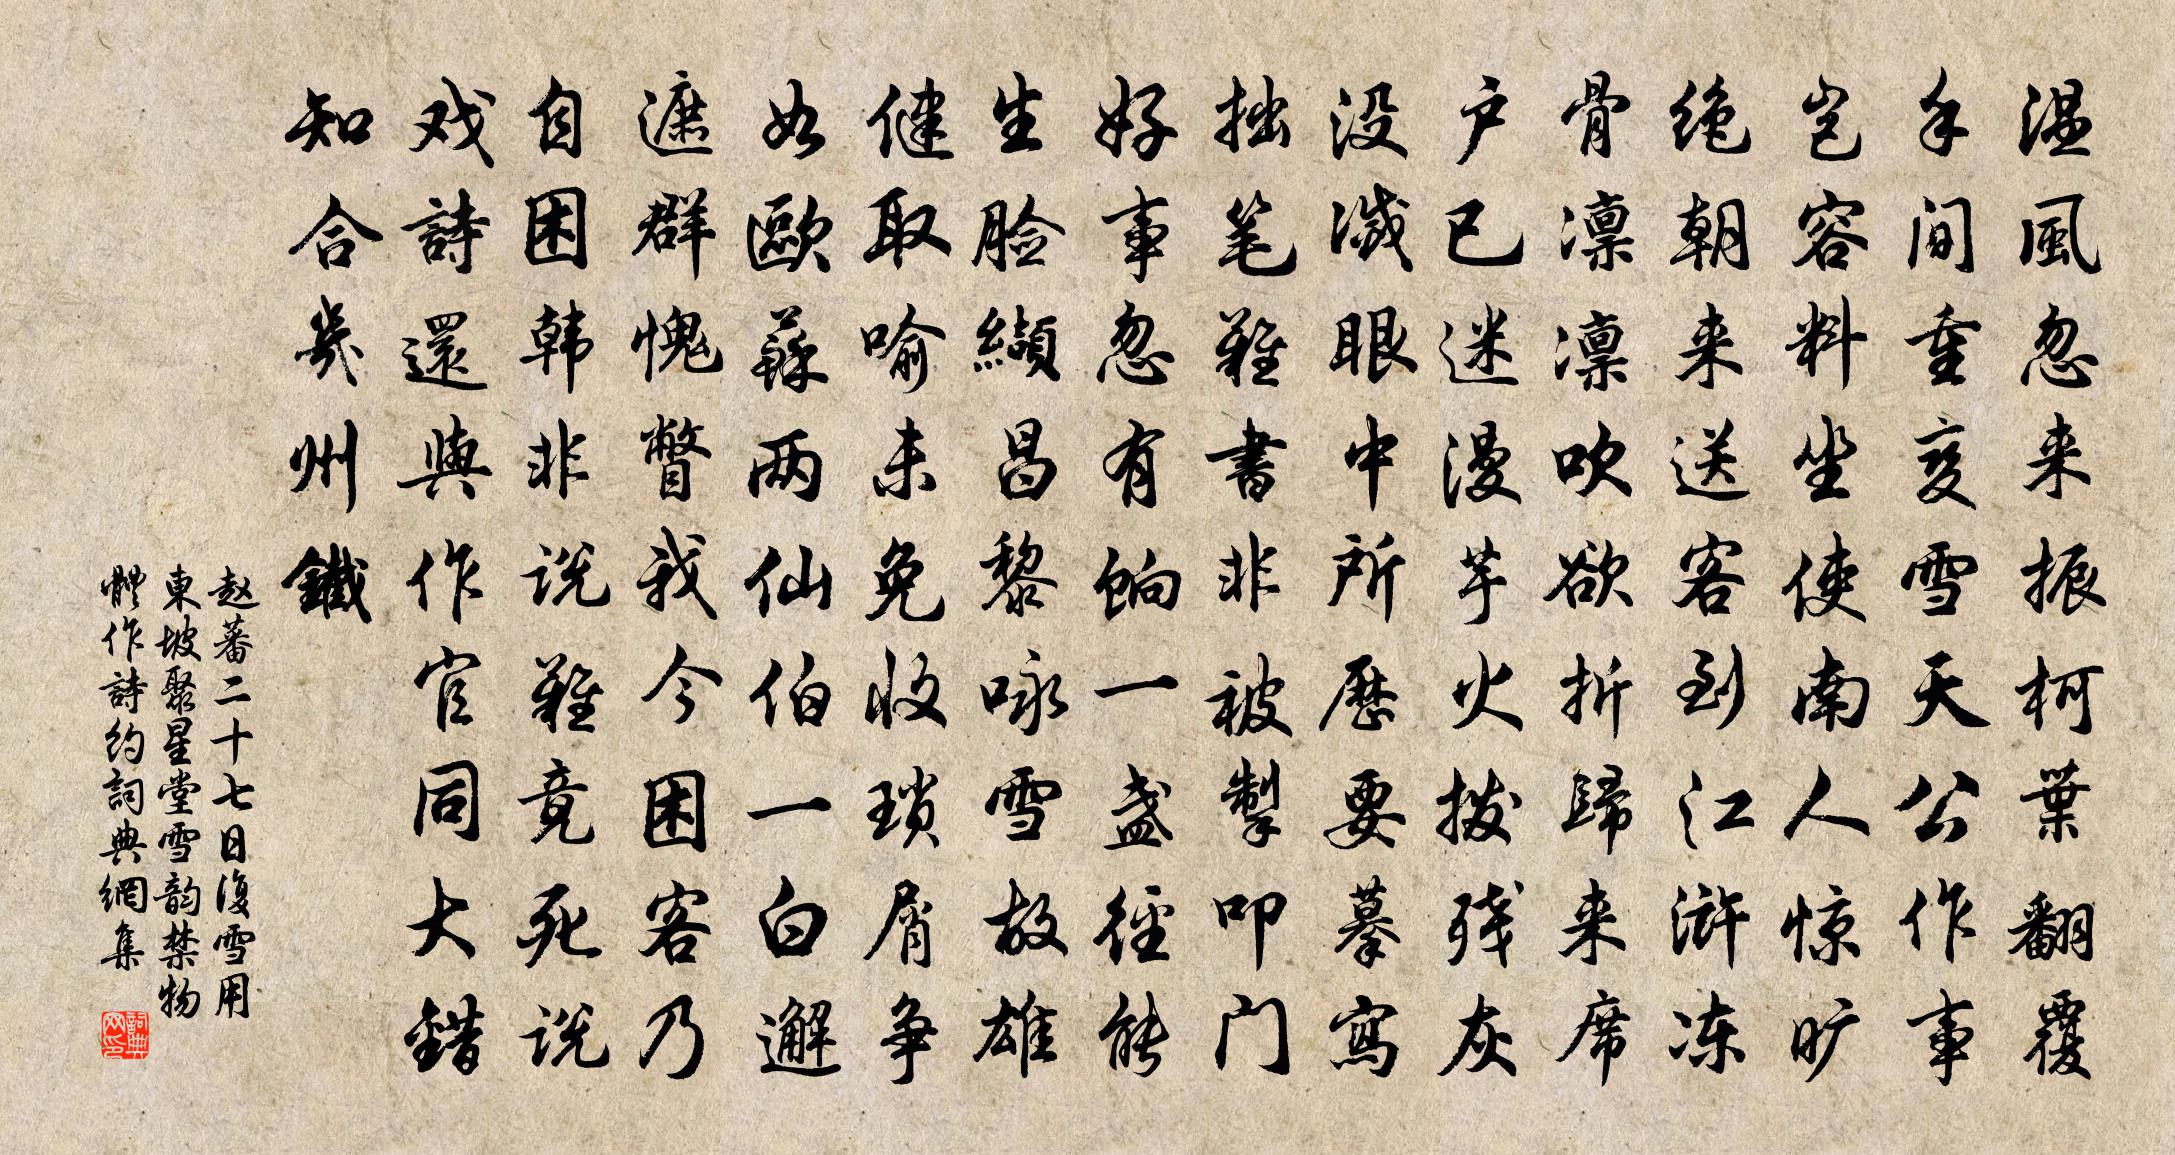 温風忽来振柯葉翻覆
手间重变雪天公作事
岂容料坐使南人惊旷
绝朝来送客到江浒冻
骨凛凛吹欲折歸来席
户已迷漫芋火拨残灰
没滅眼中所歷要摹寫
拙笔難書非被掣叩门
好事忽有餉一盏径能
生脸纈昌黎咏雪故雄
健取喻未免收琐屑争
如歐蘇两仙伯一白邂
遮群愧瞥我今困客乃
自困韩非说難竟死说
戏詩還與作官同大错
知合幾州鐵
赵蕃二十七日復雪用
東坡聚星堂雪韵禁物
體作詩約詞典網集
詞典网印